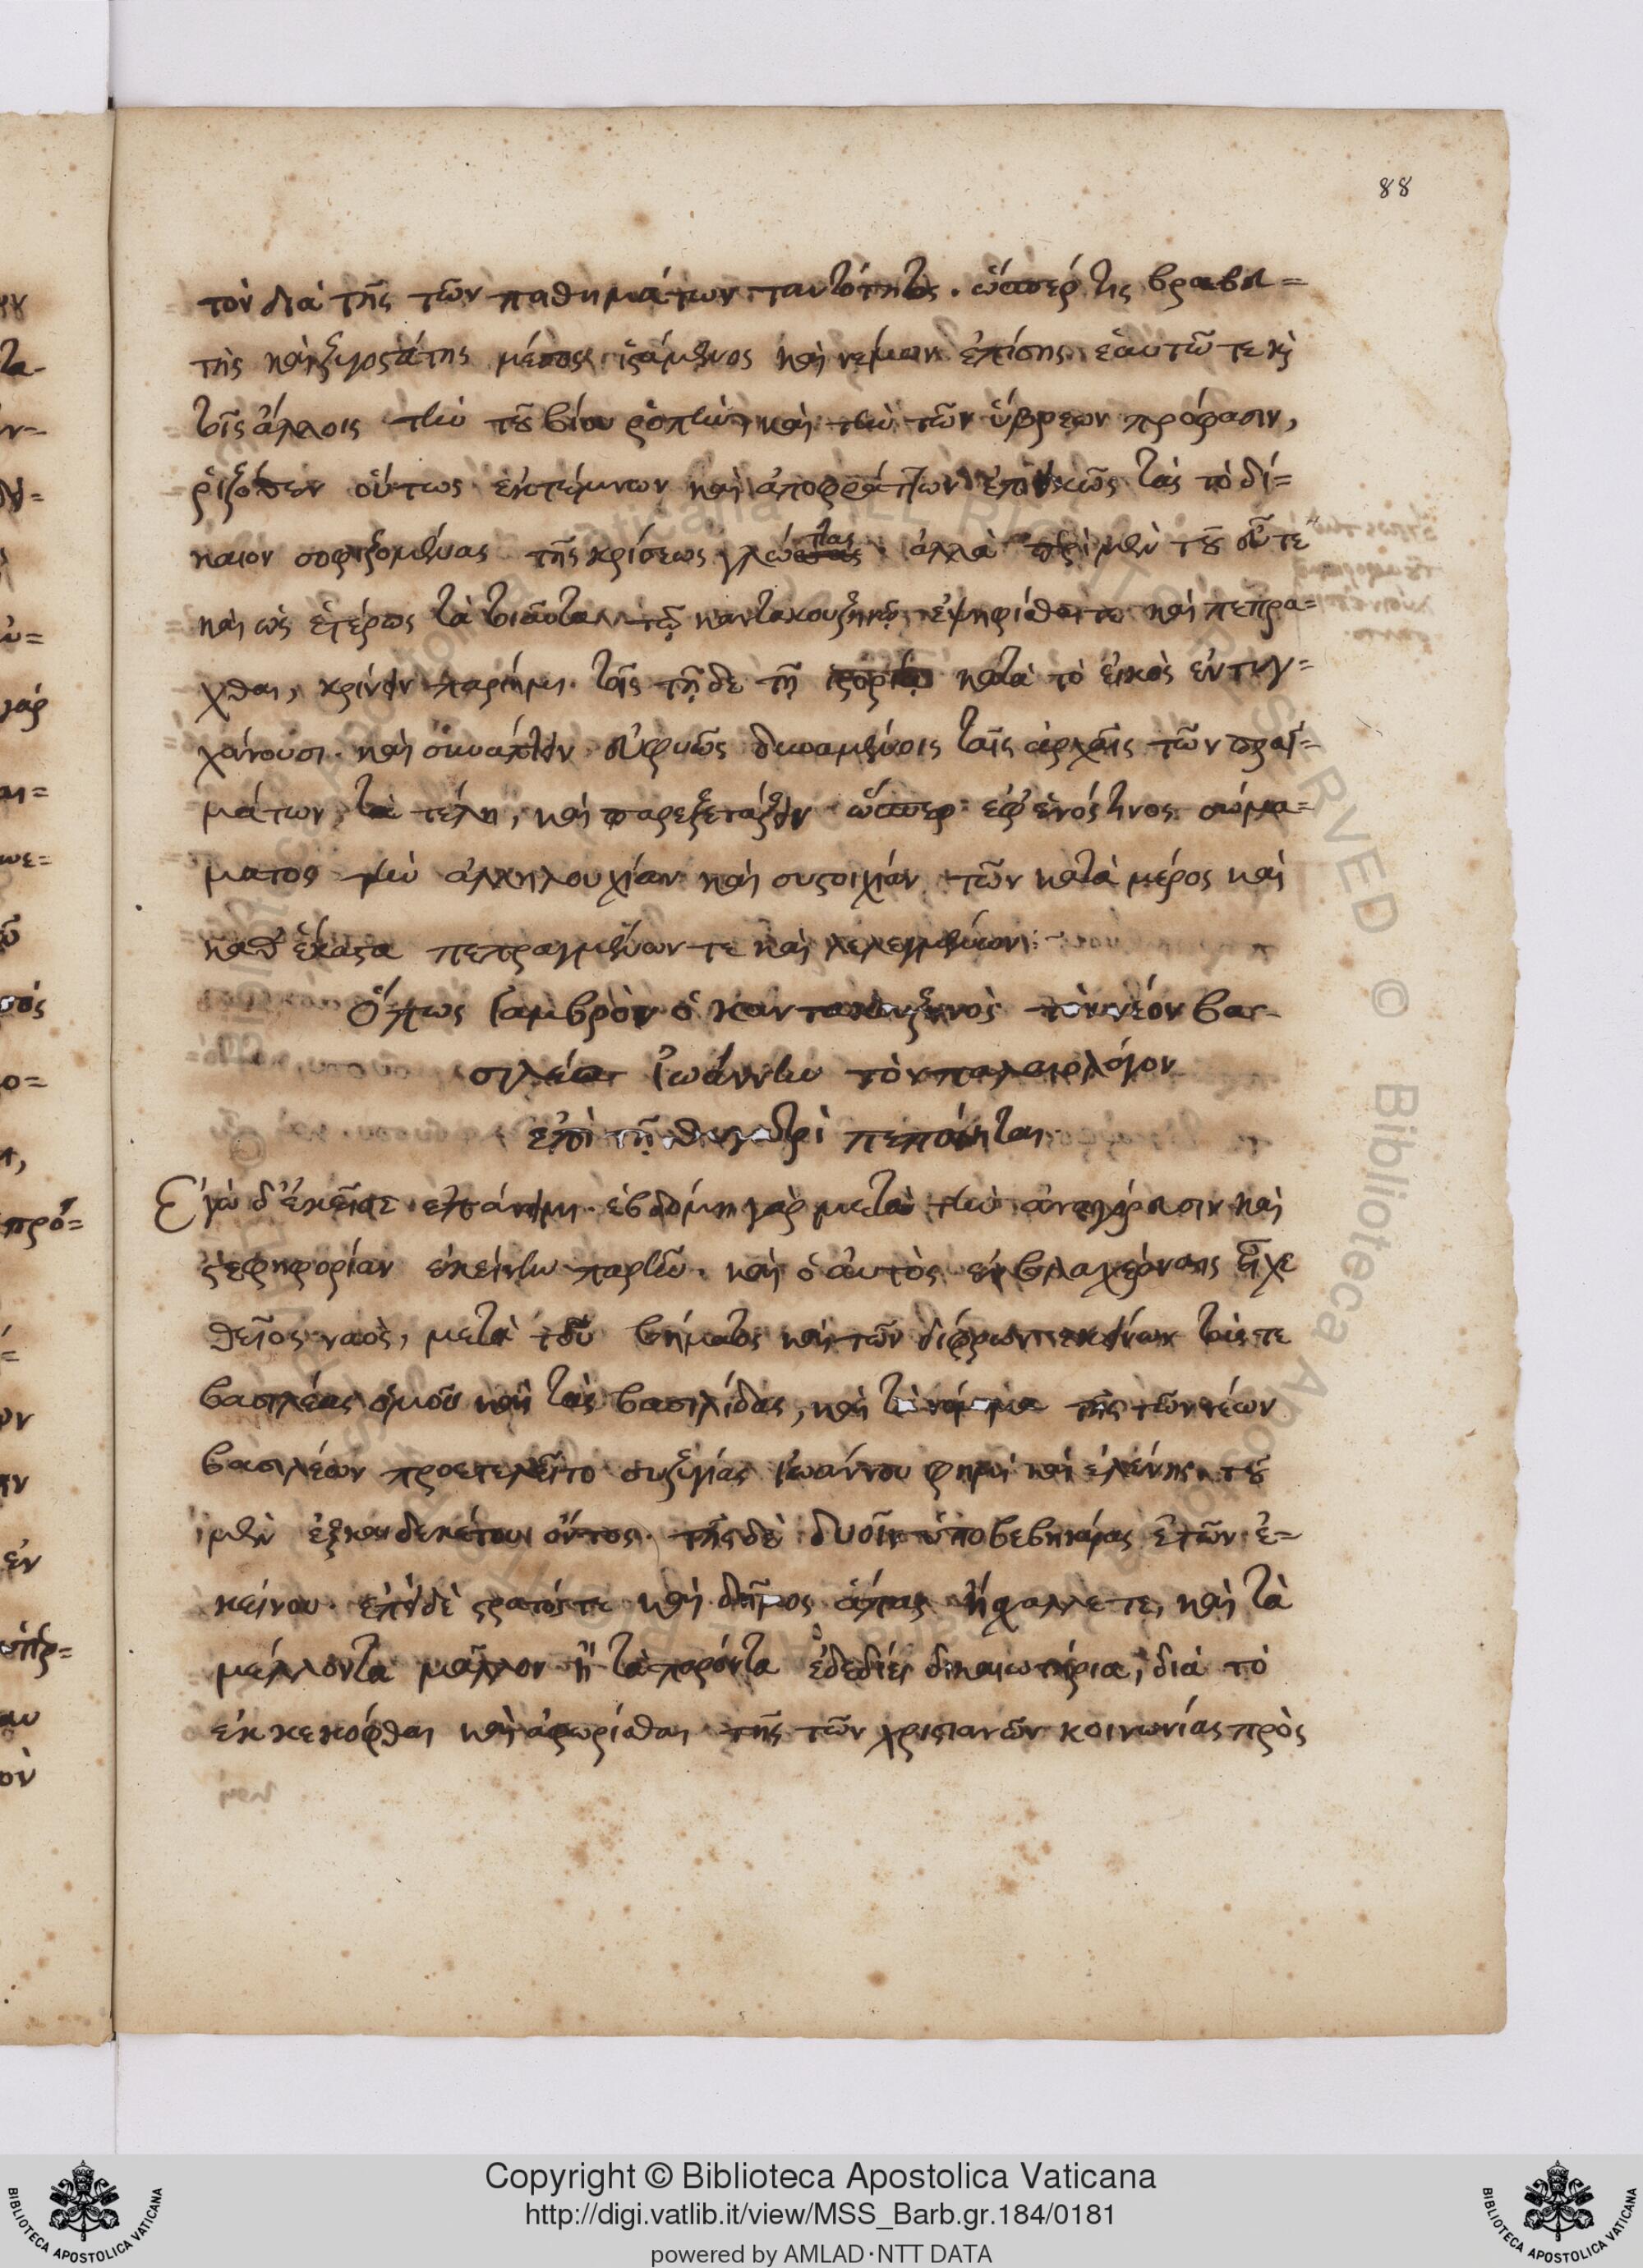 88
τὸν διὰ τῆς τῶν παθημάτων ταυτότητος. ὥσπέρ τις βραβευ=
τὴς καὶ ζυγοστάτης μέσος ἱστάμενος καὶ νέμων ἐπίσης ἑαυτῶ τε καὶ
τοῖς ἄλλοις τὴν τοῦ βίου ῥοπὴν, καὶ τὴν τῶν ὕβρεων πρόφασιν,
ῥιζόθεν οὕτως ἐκτέμνων καὶ ἀποφράττων ἐπιεικῶς τὰς τὸ δί=
καιον σοφιζομένας τῆς κρίσεως γλώττας. ἀλλὰ περὶ μὲν τοῦ οὕτε
καὶ ὡς ἑτέρως τὰ τοιαῦτα τῶ καντακουζηνῶ ἐψηφίσθαι τε καὶ πεπρᾶ=
χθαι, κρίνειν παρίημι τοῖς τῆδε τῆ ἱστορία κατὰ τὸ εἰκὸς ἐντυγ=
χάνουσι. καὶ συνάπτειν εὐφυῶς δυναμένοις ταῖς ἀρχαῖς τῶν πραγ=
μάτων τὰ τέλη, καὶ παρεξετάζειν ὥσπερ ἐφ' ἑνός τινος σώμα=
ματος τὴν ἀλληλουχίαν καὶ συστοιχίαν τῶν κατὰ μέρος καὶ
καθ' ἕκαστα πεπραγμένων τε καὶ λελεγμένων:
Ὅπως γαμβρὸν ὁ καντακουζηνὸς τὸν νέον βα-
σιλέα Ἰωάννην τὸν παλαιολόγον
ἐπὶ τῆ θυγατρὶ πεποίηται.
Ἐγὼ δ' ἐκεῖσε ἐπάνειμι. ἑβδόμη γὰρ μετὰ τὴν ἀναγόρευσιν καὶ
στεφηφορίαν ἐκείνην παρῆν. καὶ ὁ αὐτὸς ἐν βλαχέρναις εἶχε
θεῖος ναὸς, μετὰ τοῦ βήματος καὶ τῶν δίφρων ἐκείνων τούς τε
βασιλέας ὁμοῦ καὶ τὰς βασιλίδας, καὶ τὰ νόμιμα τῆς τῶν νέων
βασιλέων προετελεῖτο συζυγίας Ἰωάννου φημὶ καὶ ἑλένης. τοῦ
μὲν ἑξκαιδεκέτου ὄντος. τῆς δὲ δυοῖν ὑποβεβηκυίας ἐτῶν ἐ=
κείνου. ἐπεὶ δὲ στρατός τε καὶ δῆμος ἅπας καὶ τὰ
μέλλοντα μᾶλλον ἢ τὰ παρόντα ἐδεδίει δικαιωτήρια, διὰ τὸ
ἐκκεκόφθαι καὶ ἀφωρίσθαι τῆς τῶν χριστιανῶν κοινωνίας πρὸς
Copyright © Biblioteca Apostolica Vaticana
http://digi.vatlib.it/view/MSS_Barb.gr.184/0181
powered by AMLAD·NTT DATA
BIBLIOTECA APOSTOLICA VATICANA
BIBLIOTECA APOSTOLICA VATICANA